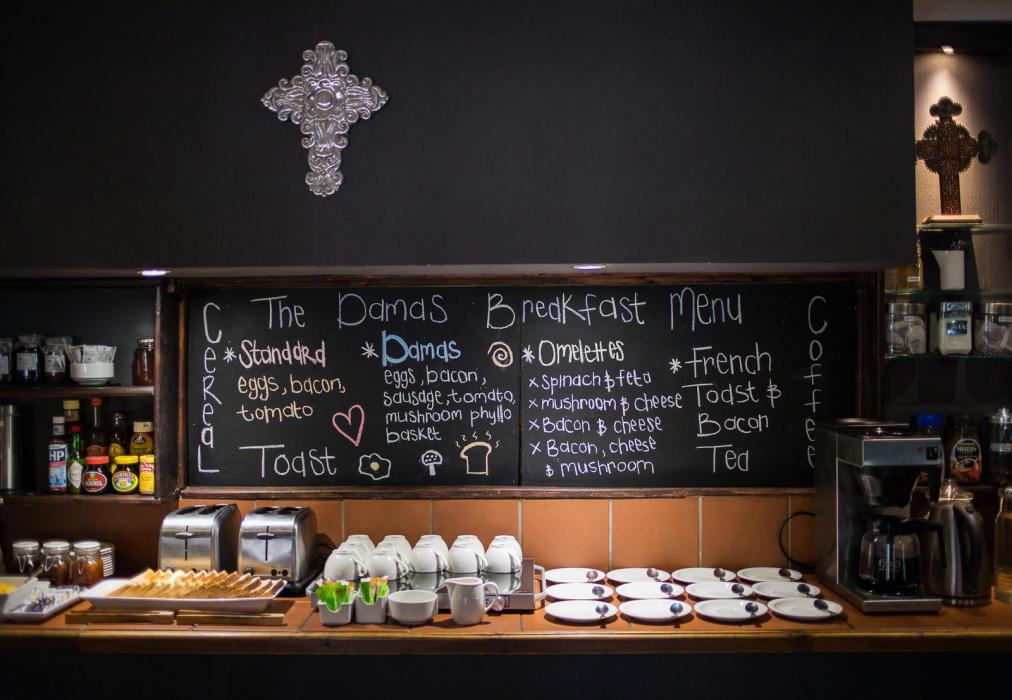 The Damas Breakfast Menu
CeReaL
*Standard
eggs, bacon,
tomato
Toast
*Damas
eggs, bacon,
sausage, tomato,
mushroom phyllo
basket
*Omelettes
x Spinach & feta
x mushroom & cheese
x Bacon & cheese
x Bacon, cheese
& mushroom
*French
Toast &
Bacon
Tea
Coffee
HP
BOVRIL
MARMITE
NESCAFÉ